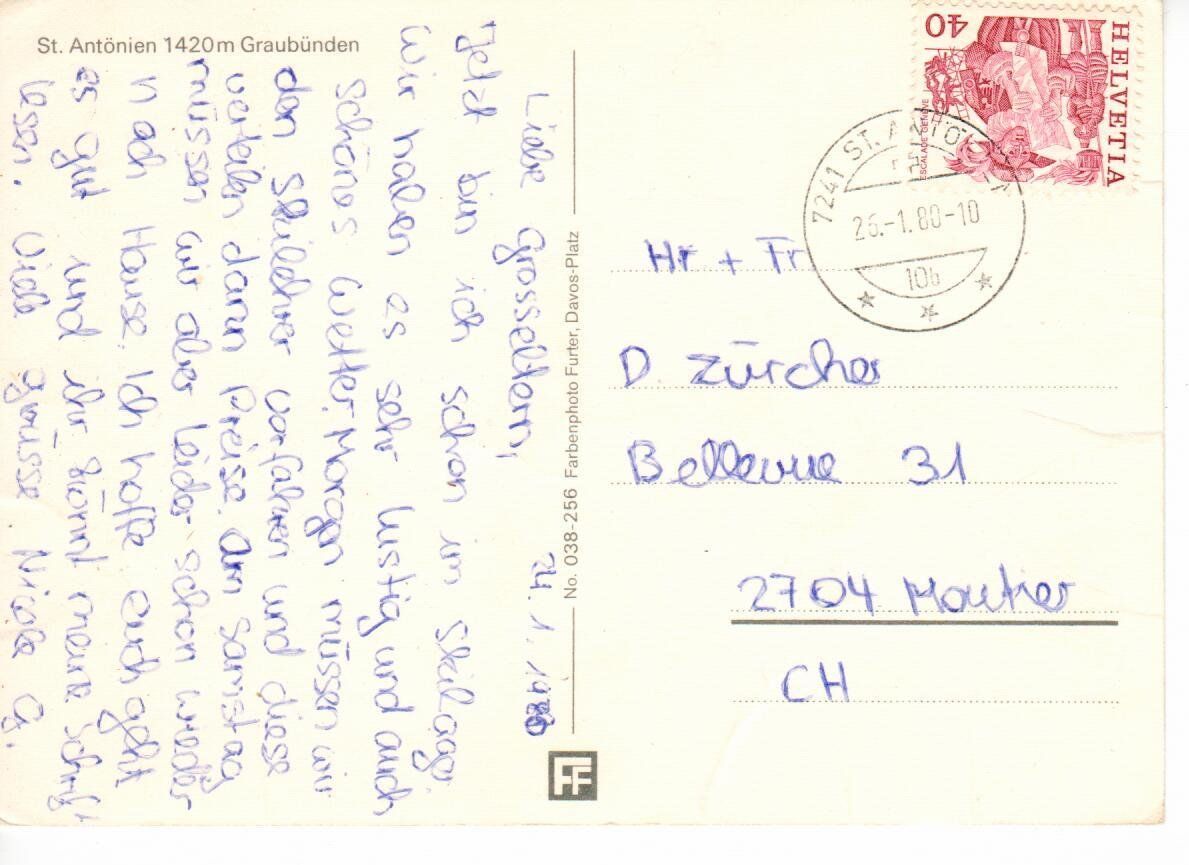 St. Antönien 1420m Graubünden
24.1.1980
Liebe Grosseltern,
Jetzt bin ich schon im Skilager.
Wir haben es sehr lustig und auch
schönes Wetter. Morgen müssen wir
den Skilehrer vorfahren und diese
verteilen dann Preise. Am Samstag
müssen wir aber leider schon wieder
nach Hause. Ich hoffe euch geht
es gut und ihr könnt meine Schrift
lesen. Viele Grüsse Nicole G.
No. 038-256 Farbenphoto Furter, Davos-Platz
FF
HELVETIA
40
ESCALADE GENÈVE
7241 ST. ANTÖNIEN
26.-1.80-10
10b
Hr + Fr
D. Zürcher
Bellevue 31
2704 Moutier
CH